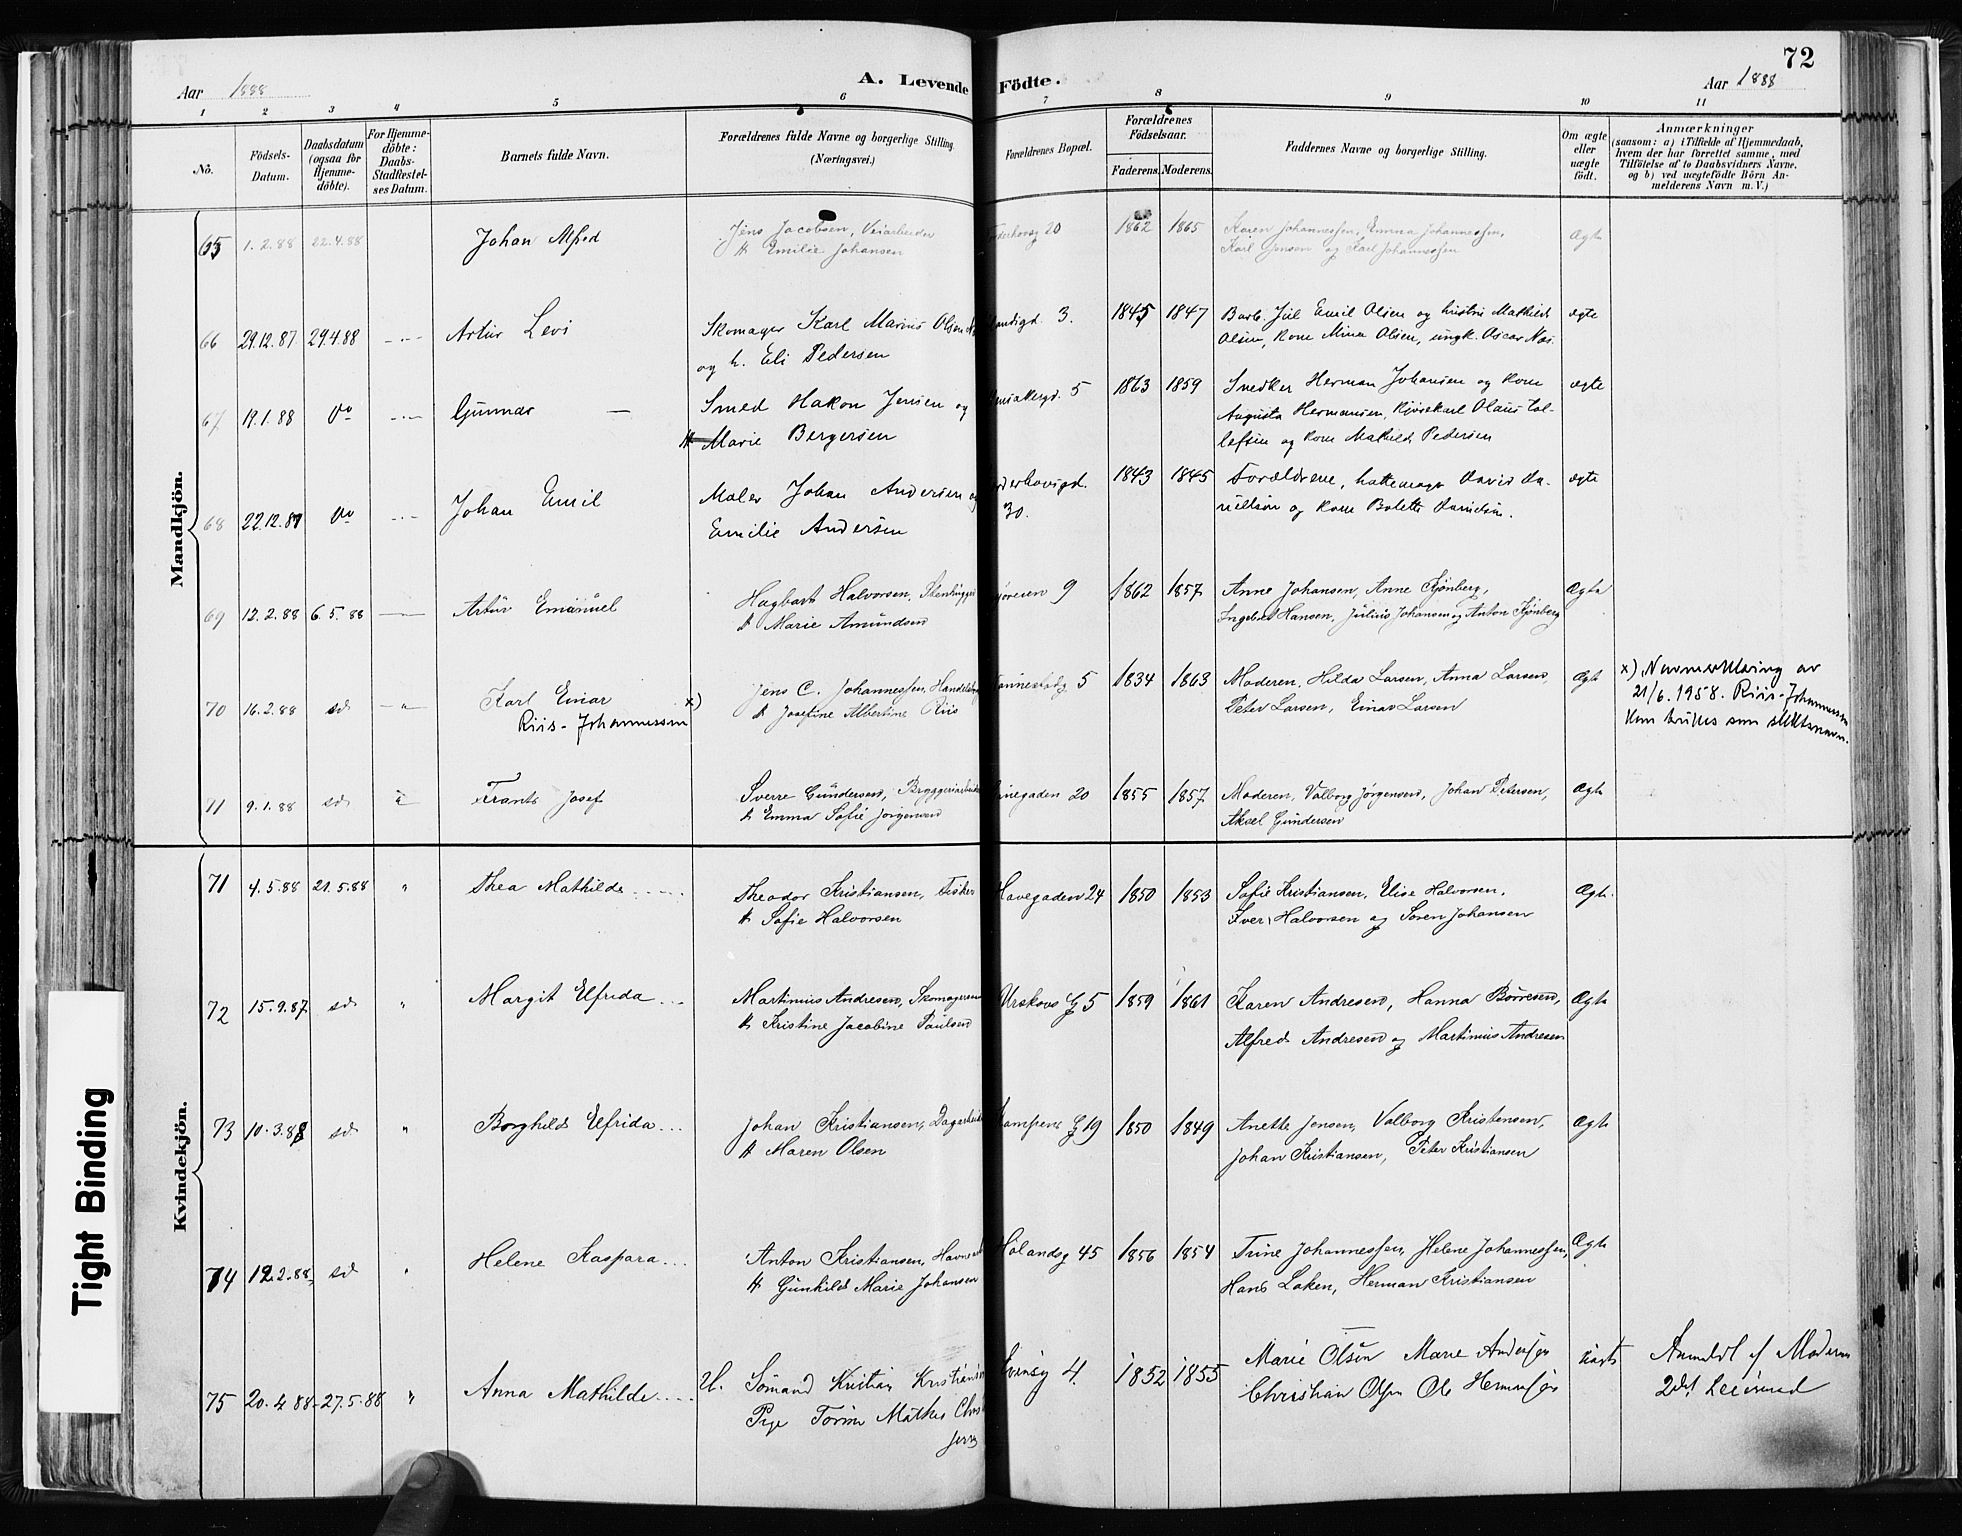 72
Aar 1888
A. Levende Födte.
Aar 1888
1 2 3 4 5 6 7 8 9 10 11
No.
Födsels-
Datum.
Daabsdatum
(ogsaa for
Hjemme-
döbte).
For Hjemme-
döbte:
Daabs-
Stadfæstel-
ses Datum.
Barnets fulde Navn.
Forældrenes fulde Navne og borgerlige Stilling
(Næringsvei.)
Forældrenes Bopæl.
Forældrenes
Födselsaar.
Faderens. Moderens.
Faddernes Navne og borgerlige Stilling.
Om ægte
eller
uægte
födt.
Anmærkninger
(saasom: a) i Tilfælde af Hjemmedaab,
hvem der har forrettet samme, med
Tilföielse af to Daabsvidners Navne,
og b) ved uægtefödte Börn An-
melderens Navn m. V.)
Mandkjön.
65 1.2.88 22.4.88 Johan Alfred Jens Jacobsen, Veiarbeider 20 1862 1865 Karen Johannessen, Emma Johannessen, Ægte
h Emilie Johansen Karl Jensen og Karl Johannessen
66 29.12.87 29.4.88 Artur Levi Skomager Karl Marius Olsen 3. 1845 1847 Emil Olsen og Mathilde ægte
og h. Eli Pedersen Olsen, Kone Mina Olsen, ungk. Oscar Næs.
67 19.1.88 Do Gunnar Smed Hakon Jensen og 5 1863 1859 Snedker Herman Johansen og Kone ægte
H Marie Bergersen Augusta Hermansen, Kjørekarl Olaus Tol-
lefsen og Kone Mathild Pedersen
68 22.12.87 Do Johan Emil Maler Johan Andersen og 30. 1843 1845 Forældrene, hattemager David Da- ægte
Emilie Andersen nielsen og Kone Bolette
69 12.2.88 6.5.88 Artur Emanuel Hagbart Halvorsen, Stenhugger 9 1862 1857 Anne Johansen, Anne Kjønberg, Ægte
h Marie Amundsen Ingebret Hansen, Julius Johansen og Anton Kjønberg
70 16.2.88 sd Karl Einar x) Jens C. Johannessen, 5 1834 1863 Moderen, Hilda Larsen, Anna Larsen, Ægt x) Navneerklæring av
Riis-Johannessen h Josefine Albertine Riis Peter Larsen, Einar Larsen 21/6.1958. Riis-Johannessen
kun brukes som slektsnavn.
71 9.1.88 sd Frants Josef Sverre Gundersen, Bryggeriarbeider 20 1855 1857 Moderen, Valborg Jørgensen, Johan Petersen, Ægte
h Emma Sofie Jørgensen Aksel Gundersen
Kvindekjön.
71 4.5.88 21.5.88 " Thea Mathilde Theodor Kristiansen, Fisker Havegaden 24 1850 1853 Sofie Kristiansen, Elise Halvorsen, Ægte
h Sofie Halvorsen Iver Halvorsen og Søren Johansen
72 15.9.87 sd " Margit Elfrida Martinius Andresen, Skomagersv Urskovs G 5 1859 1861 Karen Andresen, Hanna Børresen, Ægte
h Kristine Jacobine Paulsen Alfred Andresen og Martinius Andresen
73 10.3.88 sd " Borghild Elfrida Johan Kristiansen, Dagarbeider Kampens G 19 1850 1849 Anette Jensen, Valborg Kristensen, Ægte
h Maren Olsen Johan Kristiansen, Peter Kristiansen
74 12.2.88 sd " Helene Kaspara Anton Kristiansen, Havnearb Hølandsg 45 1856 1854 Trine Johannessen, Helene Johannessen, Ægte
h Gunhild Marie Johansen Hans Løken, Herman Kristiansen
75 20.4.88 27.5.88 " Anna Mathilde U. Sømand Kristian Kristiansen 4. 1852 1855 Marie Olsen Marie Andersen Anmeldt af Moderen
Pige Christian Olsen Ole Hermansen
Tight Binding